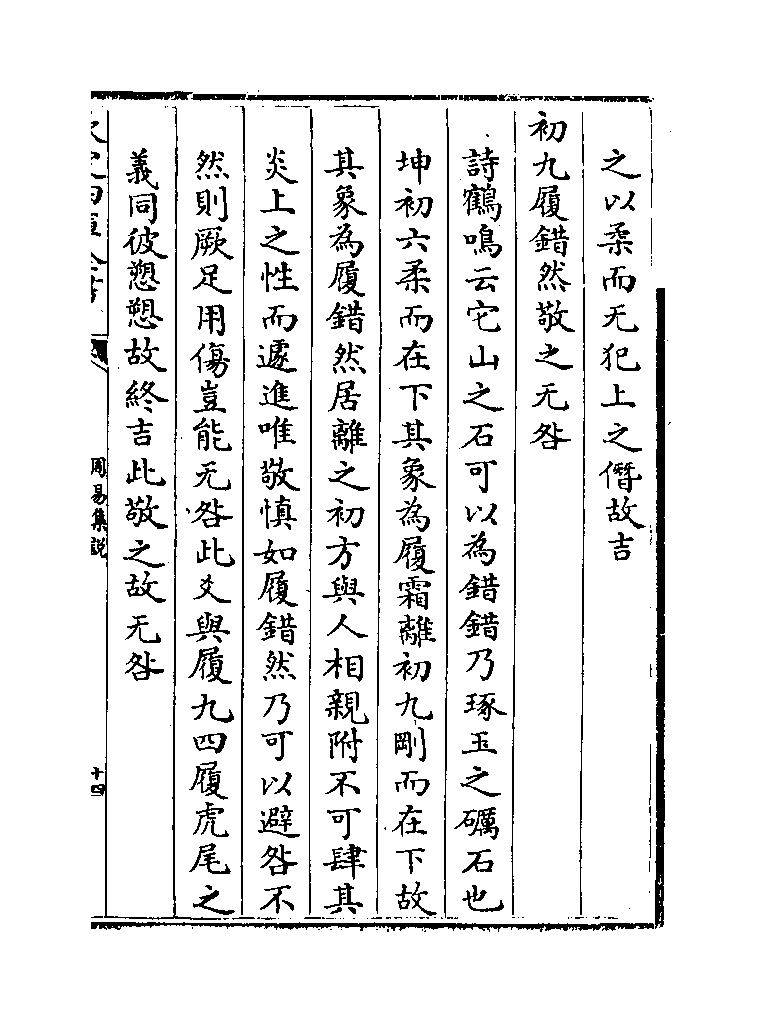 之以柔而无犯上之僭故吉
初九履錯然敬之无咎
詩鶴鳴云它山之石可以為錯錯乃琢玉之礪石也
坤初六柔而在下其象為履霜離初九剛而在下故
其象為履錯然居離之初方與人相親附不可肆其
炎上之性而遽進唯敬慎如履錯然乃可以避咎不
然則厥足用傷豈能无咎此爻與履九四履虎尾之
義同彼愬愬故終吉此敬之故无咎
周易集說
十四